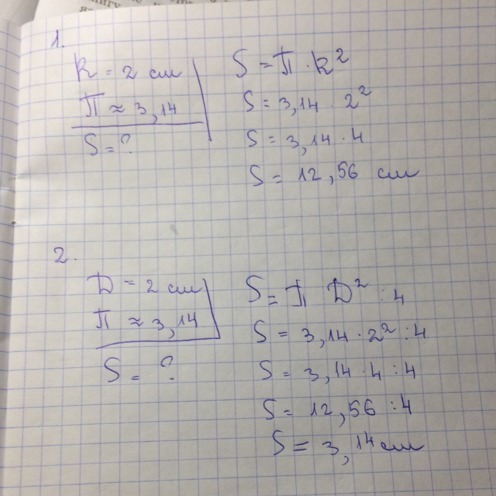 1.
R = 2 см
П ≈ 3,14
S = ?
S = П · R²
S = 3,14 · 2²
S = 3,14 · 4
S = 12,56 см
2.
D = 2 см
П ≈ 3,14
S = ?
S = П D² : 4
S = 3,14 · 2² : 4
S = 3,14 · 4 : 4
S = 12,56 : 4
S = 3,14 см